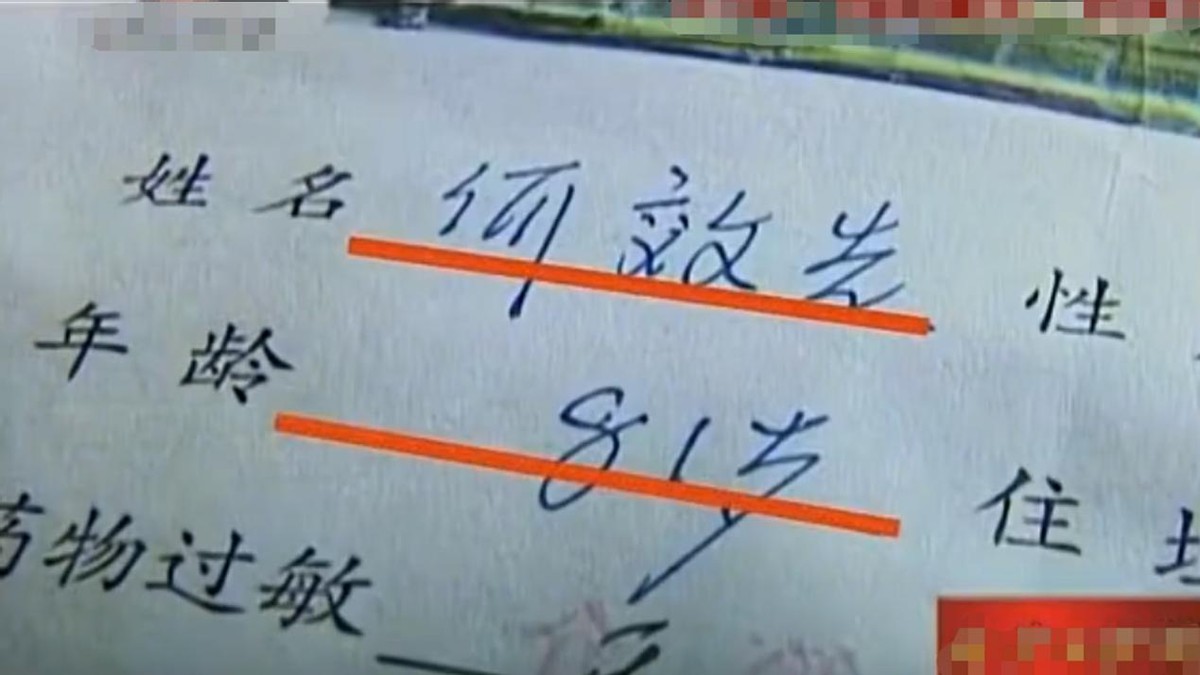 姓名 何效先 性
年龄 81岁 住
药物过敏